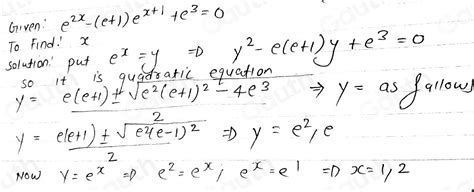 Given: e^{2x}-(e+1)e^{x+1}+e^3=0
To Find: x
Solution: put e^x=y ⇒ y^2-e(e+1)y+e^3=0
so it is quadratic equation
y = (e(e+1)±√(e^2(e+1)^2-4e^3))/2 → y = as follows
y = (e(e+1)±√(e^2(e-1)^2))/2 ⇒ y=e^2,e
Now y=e^x ⇒ e^2=e^x; e^x=e^1 ⇒ x=1,2